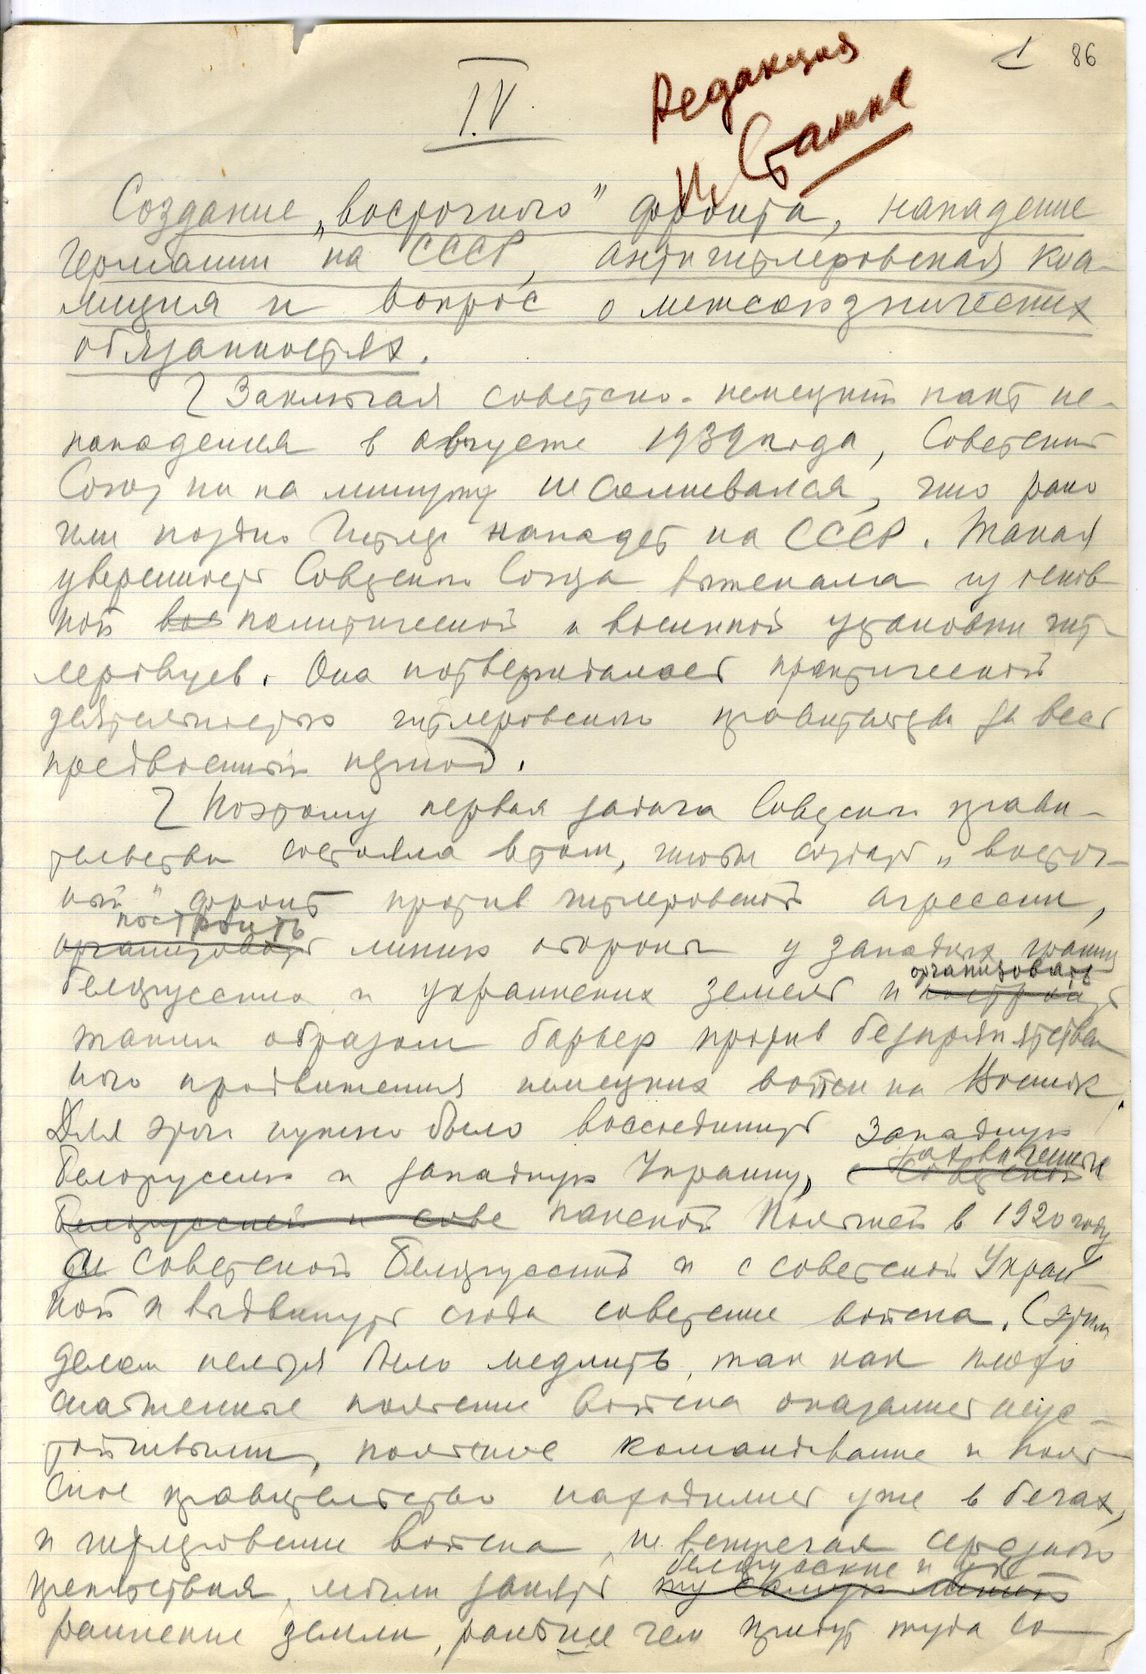 1 86
Редакция
И. Сталина
IV.
Создание „восточного" фронта, нападение
Германии на СССР, антигитлеровская коа-
лиция и вопрос о межсоюзнических
обязанностях.
Заключая советско-немецкий пакт не-
нападения в августе 1939 года, Советский
Союз ни на минуту не сомневался, что рано
или поздно Гитлер нападет на СССР. Такая
уверенность Советского Союза вытекала из основ-
ной вос политической и военной установки гит-
леровцев. Она подтверждалась практической
деятельностью гитлеровского правительства за весь
предвоенный период.
Поэтому первая задача Советского прави-
тельства состояла в том, чтобы создать „восточ-
ный" фронт против гитлеровской агрессии,
построить
организовать линию обороны у западных границ
организовать
белорусских и украинских земель и построить
таким образом барьер против безпрепятствен
ного продвижения немецких войск на Восток.
Для этого нужно было воссоединить Западную
захваченные
Белоруссию и западную Украину, с советской
Белоруссией и сове панской Польшей в 1920 году
с советской Белоруссией и с советской Украи-
ной и выдвинуть сюда советские войска. С этим
делом нельзя было медлить, так как плохо
снабженные польские войска оказались неус-
тойчивыми, польское командование и поль-
ское правительство находились уже в бегах,
и гитлеровские войска, не встречая серьезного
белорусские и ук-
препятствия, могли занять ту самую
раинские земли, раньше чем придут туда со-